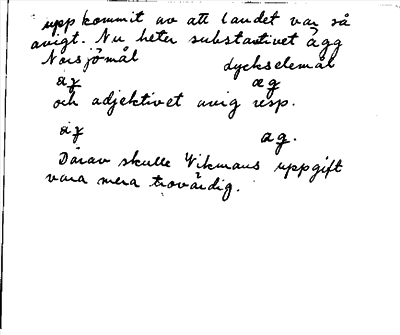 uppkommit av att landet var så
avigt. Nu heter substantivet ägg
Norsjömål dyckselemål
äg æg
och adjektivet avig resp.
äg ag.
Därav skulle Wikmans uppgift
vara mera trovärdig.